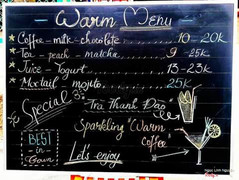 Warm Menu
Coffee - milk - chocolate ........ 10 - 20k
Tea - peach - matcha ........ 9 - 25k
Juice - Yogurt ........ 13 - 23k
Mocktail mojito ........ 25k
Special
Trà Thanh Đào
Sparkling "Warm"
Coffee
BEST
in
Town
Let's enjoy